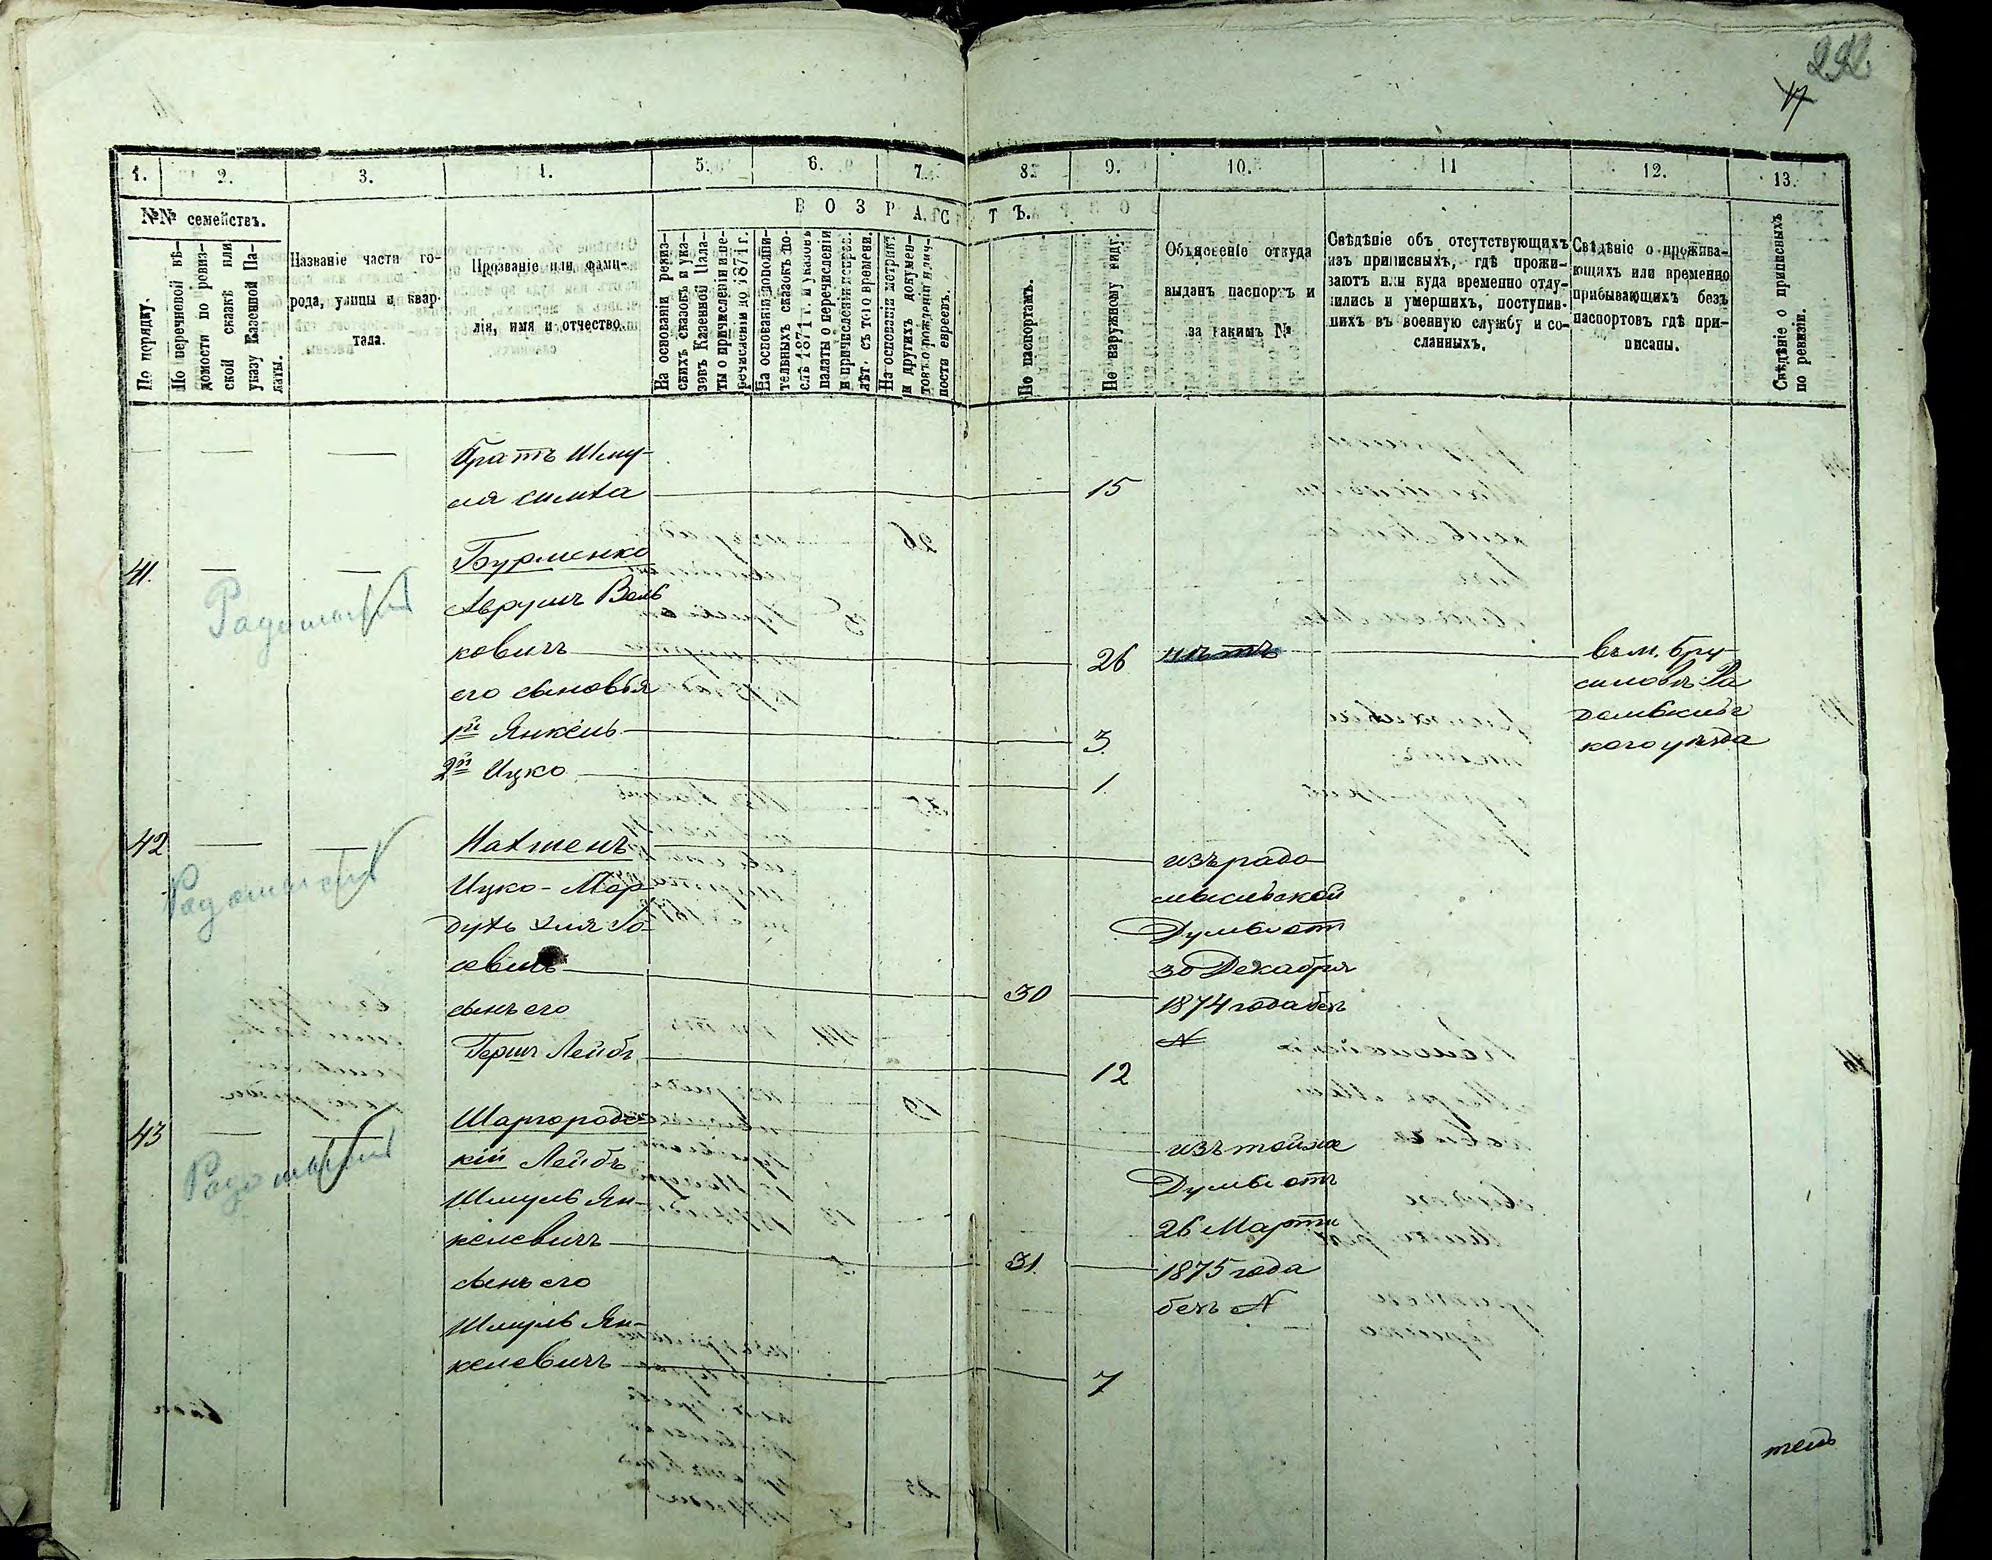 292
17
1. 2. 3. 4. 5. 6. 7. 8. 9. 10. 11 12. 13.
№№ семействъ.
ВОЗРАСТЪ.
По порядку.
По перечновой вѣ-
домости по ревиз-
ской сказкѣ или
указу Казенной Па-
латы.
Названіе части го-
рода, улицы и квар-
тала.
Прозваніе или фами-
лія, имя и отчество.
На основаніи ревиз-
скихъ сказокъ и ука-
зовъ Казенной Пала-
ты о причисленіи и пе-
речисленіи до 1874 г.
На основаніи дополни-
тельныхъ сказокъ по-
слѣ 1874 г. и указовъ
палаты о перечисленіи
и причисленіи непрев.
лѣт. съ того времени.
На основаніи метрикъ
и другихъ докумен-
товъ о рожденіи и лич-
ности евреевъ.
По паспортамъ.
По наружному виду.
Объясненіе откуда
выданъ паспортъ и
за какимъ №
Свѣдѣніе объ отсутствующихъ
изъ приписныхъ, гдѣ прожи-
ваютъ или куда временно отлу-
чились и умершихъ, поступив-
шихъ въ военную службу и со-
сланныхъ.
Свѣдѣніе о прожива-
ющихъ или временно
прибывающихъ безъ
паспортовъ гдѣ при-
писаны.
Свѣдѣніе о приписныхъ
по ревизіи.
Братъ Шму-
ля Симха 15
41. Бурменко
Аврумъ Воль
ковичъ 26 нѣтъ въ м. Бру-
его сыновья силовъ Ра
1й Янкель 3
2й Ицко 1.
кого уѣзда
42 Нахменъ изъ радо
Ицко-Мор- мысльской
Думы от
30 Декабря
сынъ его 30 1874 года безъ
Гершъ Лейбъ 12 №
43 Шаргородс-
кій Лейбъ изъ тойже
Шмуль Ян- Думы отъ
келевичъ 31. 26 Марта
сынъ его 1875 года
Шмуль Ян- безъ №
келевичъ 7